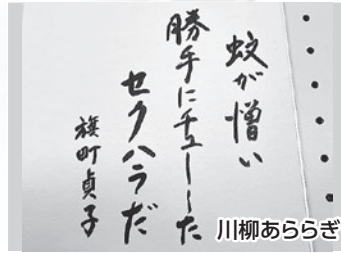 蚊が憎い
勝手にチューした
セクハラだ
旗町貞子
川柳あららぎ